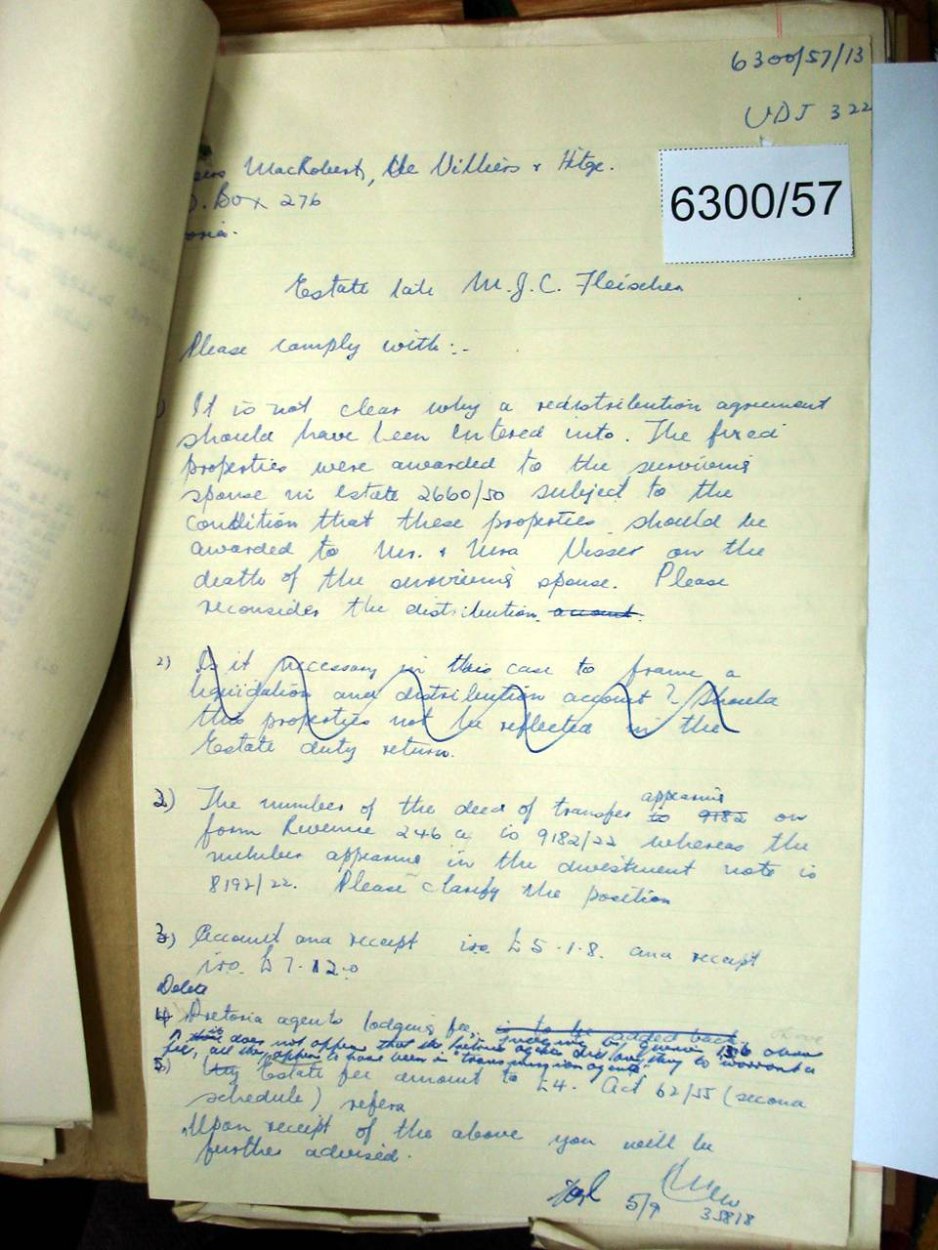 6300/57/13
UDJ 322
6300/57
MacRobert, de Villiers & Hitge.
. Box 276
oria.
Estate late M.J.C. Fleischer
Please comply with:-
1) It is not clear why a redistribution agreement
should have been entered into. The fixed
properties were awarded to the surviving
spouse in estate 2660/50 subject to the
condition that these properties should be
awarded to Mr. & Mrs Visser on the
death of the surviving spouse. Please
reconsider the distribution account.
2) Is it necessary in this case to frame a
liquidation and distribution account? Should
the properties not be reflected in the
Estate duty return.
appearing
2) The number of the deed of transfer to 9182 on
form Revenue 246 a is 9182/22 whereas the
number appearing in the divestment note is
8192/22. Please clarify the position
3) Account and receipt iro. £5-1-8. and receipt
iro. £7.12.0
Delete
4) Pretoria agents lodging fee, is to be added back.
does not appear that the agents did anything to warrant a
fee, all they appear to have been is "transmission agents"
5) Estate fee amount to £4. Act 62/55 (second
schedule) refers
Upon receipt of the above you will be
further advised.
5/9
35818